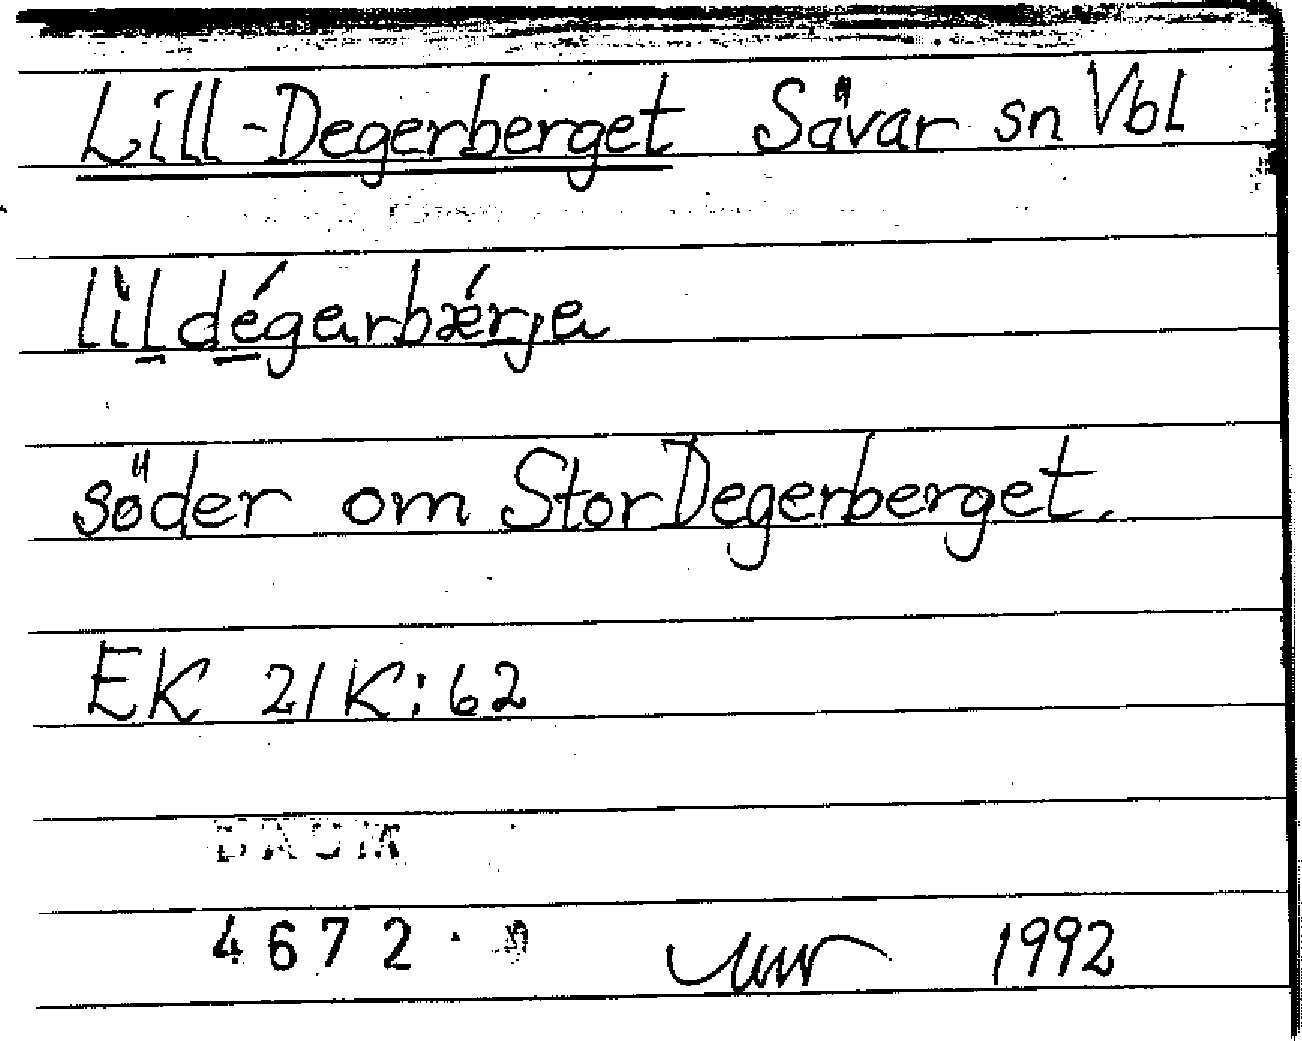 Lill-Degerberget Sävar sn Vbl
lìldégɐrbǽrjɐ
söder om StorDegerberget.
EK 21K:62
DAUM
4672.
1992